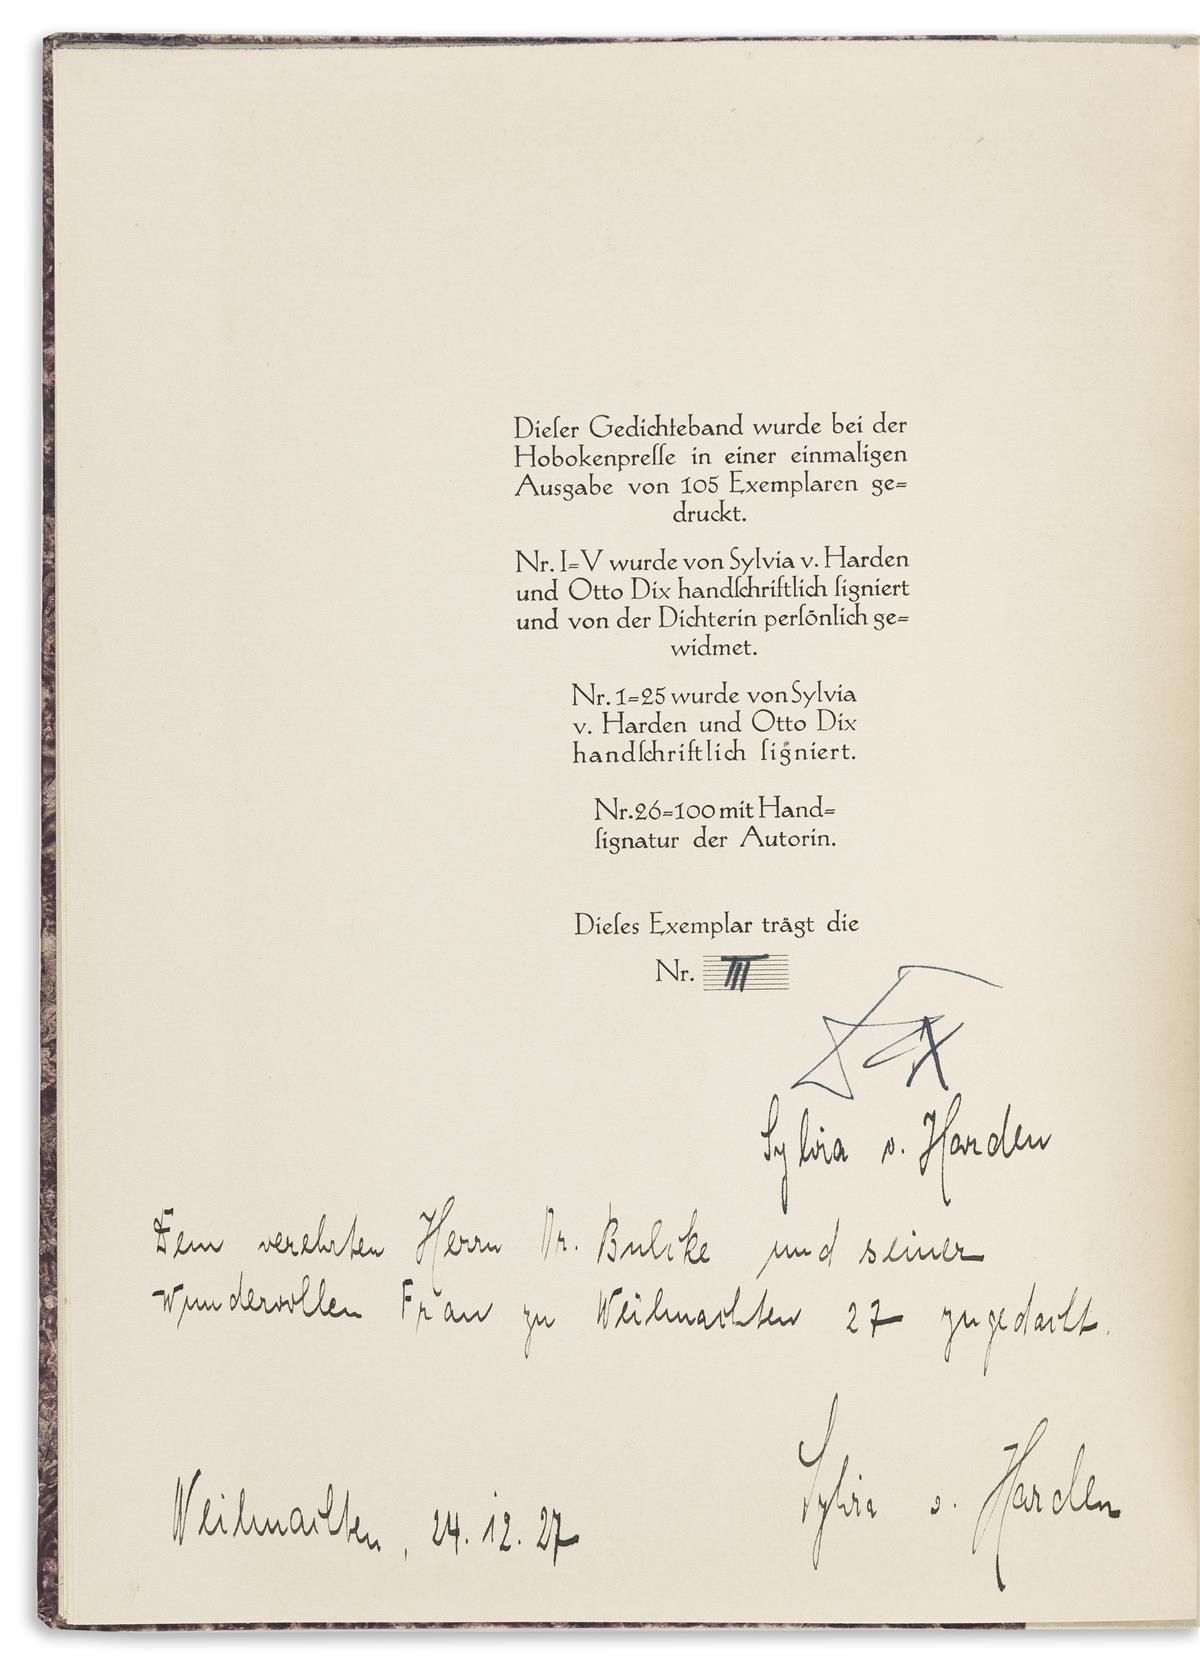 Dieſer Gedichteband wurde bei der
Hobokenpreſſe in einer einmaligen
Ausgabe von 105 Exemplaren ge=
druckt.
Nr. I=V wurde von Sylvia v. Harden
und Otto Dix handſchriftlich ſigniert
und von der Dichterin perſönlich ge=
widmet.
Nr. 1=25 wurde von Sylvia
v. Harden und Otto Dix
handſchriftlich ſigniert.
Nr. 26=100 mit Hand=
ſignatur der Autorin.
Dieſes Exemplar trägt die
Nr. III
Dix
Sylvia v. Harden
Dem verehrten Herrn Dr. Bulcke und seiner
wundervollen Frau zu Weihnachten 27 zugedacht.
Sylvia v. Harden
Weihnachten, 24. 12. 27